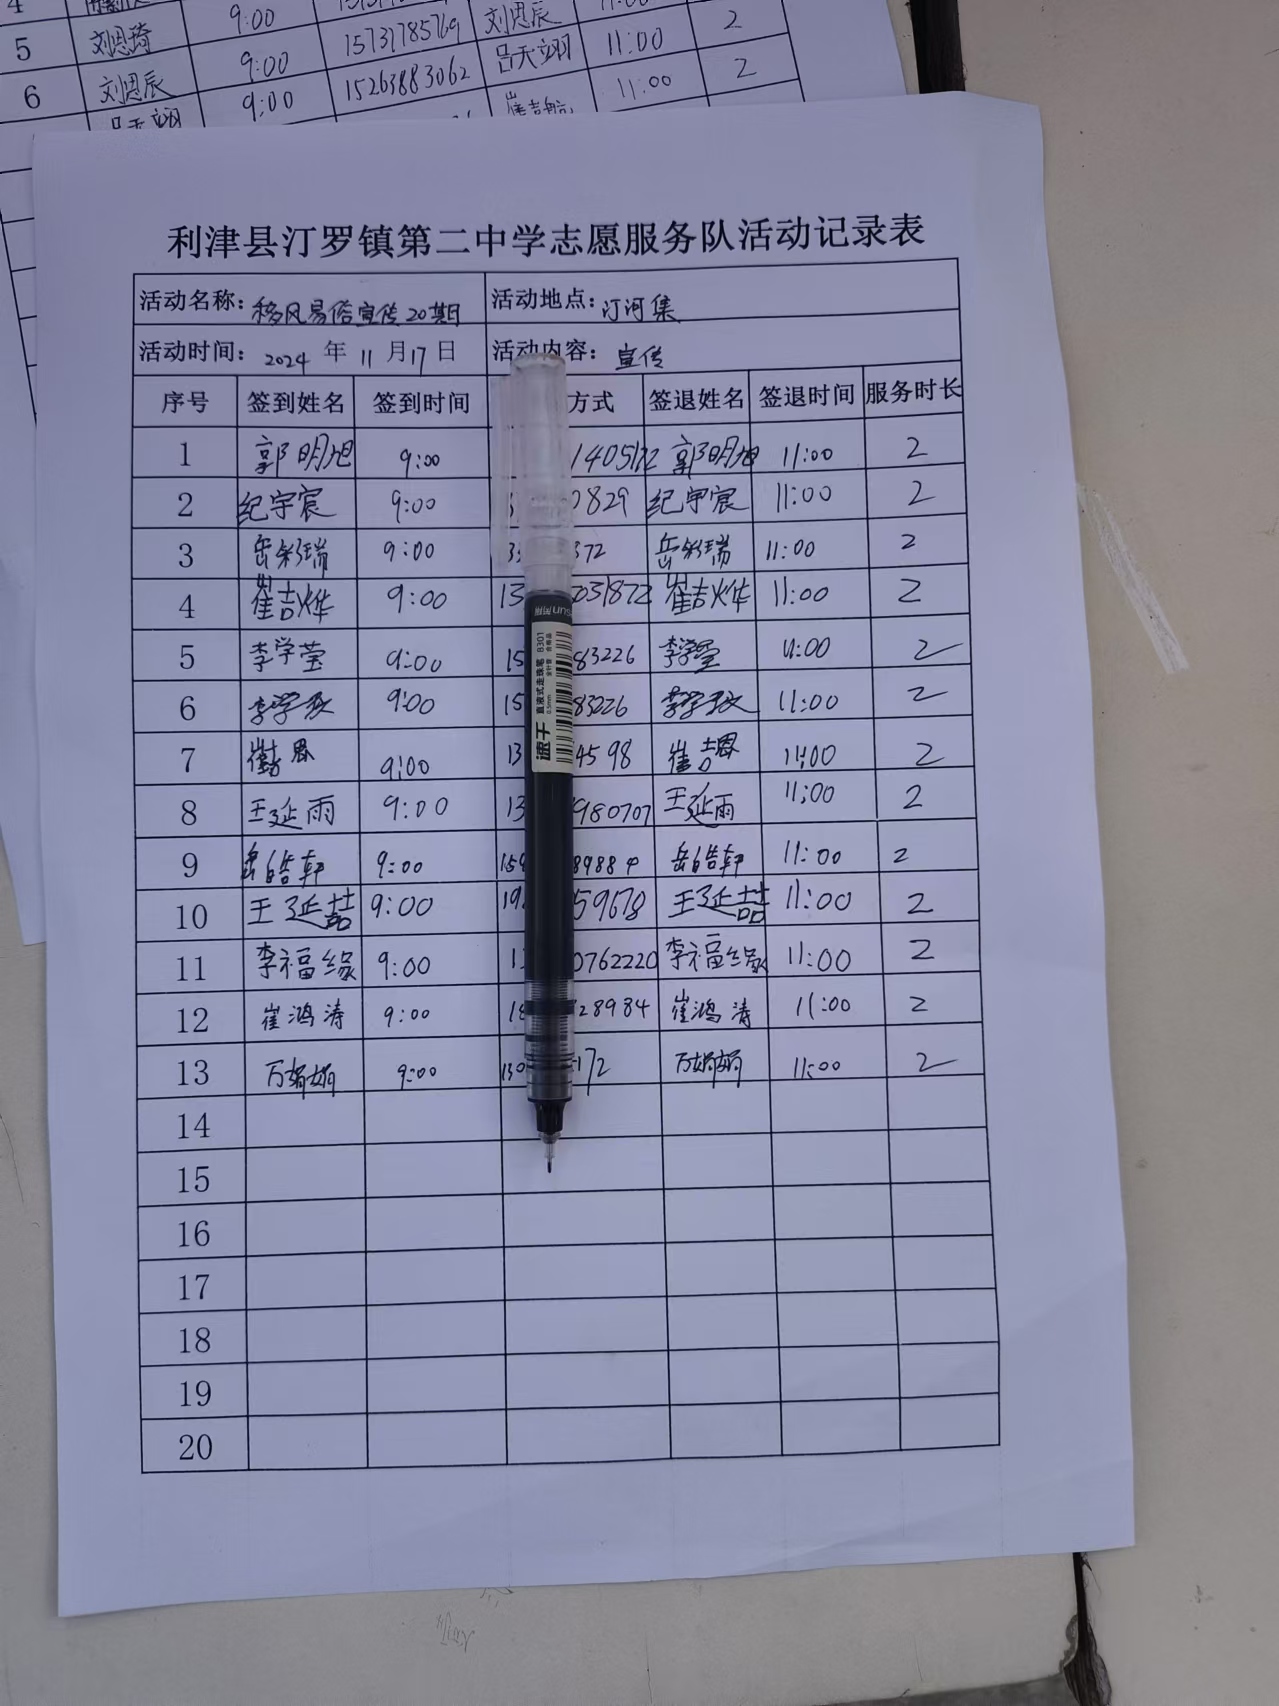 5 刘恩琦 9:00 15731785769 刘恩辰 11:00 2
6 刘恩辰 9:00 15263883062 吕天翊 11:00 2
吕天翊 9:00 崔吉航 11:00
利津县汀罗镇第二中学志愿服务队活动记录表
活动名称: 移风易俗宣传20期 活动地点: 汀河集
活动时间: 2024 年 11 月 17 日 活动内容: 宣传
序号 签到姓名 签到时间 方式 签退姓名 签退时间 服务时长
1 郭明旭 9:00 郭明旭 11:00 2
2 纪宇宸 9:00 0829 纪宇宸 11:00 2
3 岳彩瑞 9:00 372 岳彩瑞 11:00 2
4 崔吉烨 9:00 13 031872 崔吉烨 11:00 2
5 李学莹 9:00 15 83226 李学莹 11:00 2
6 李学孜 9:00 15 83226 李学孜 11:00 2
7 崔吉恩 9:00 13 4598 崔吉恩 11:00 2
8 王延雨 9:00 13 980707 王延雨 11:00 2
9 岳皓轩 9:00 159 8988 岳皓轩 11:00 2
10 王延喆 9:00 19 59678 王延喆 11:00 2
11 李福缘 9:00 1 0762220 李福缘 11:00 2
12 崔鸿涛 9:00 18 28984 崔鸿涛 11:00 2
13 万娟娟 9:00 130 172 万娟娟 11:00 2
14
15
16
17
18
19
20
速干 直液式走珠笔 8301
0.5mm 全针管